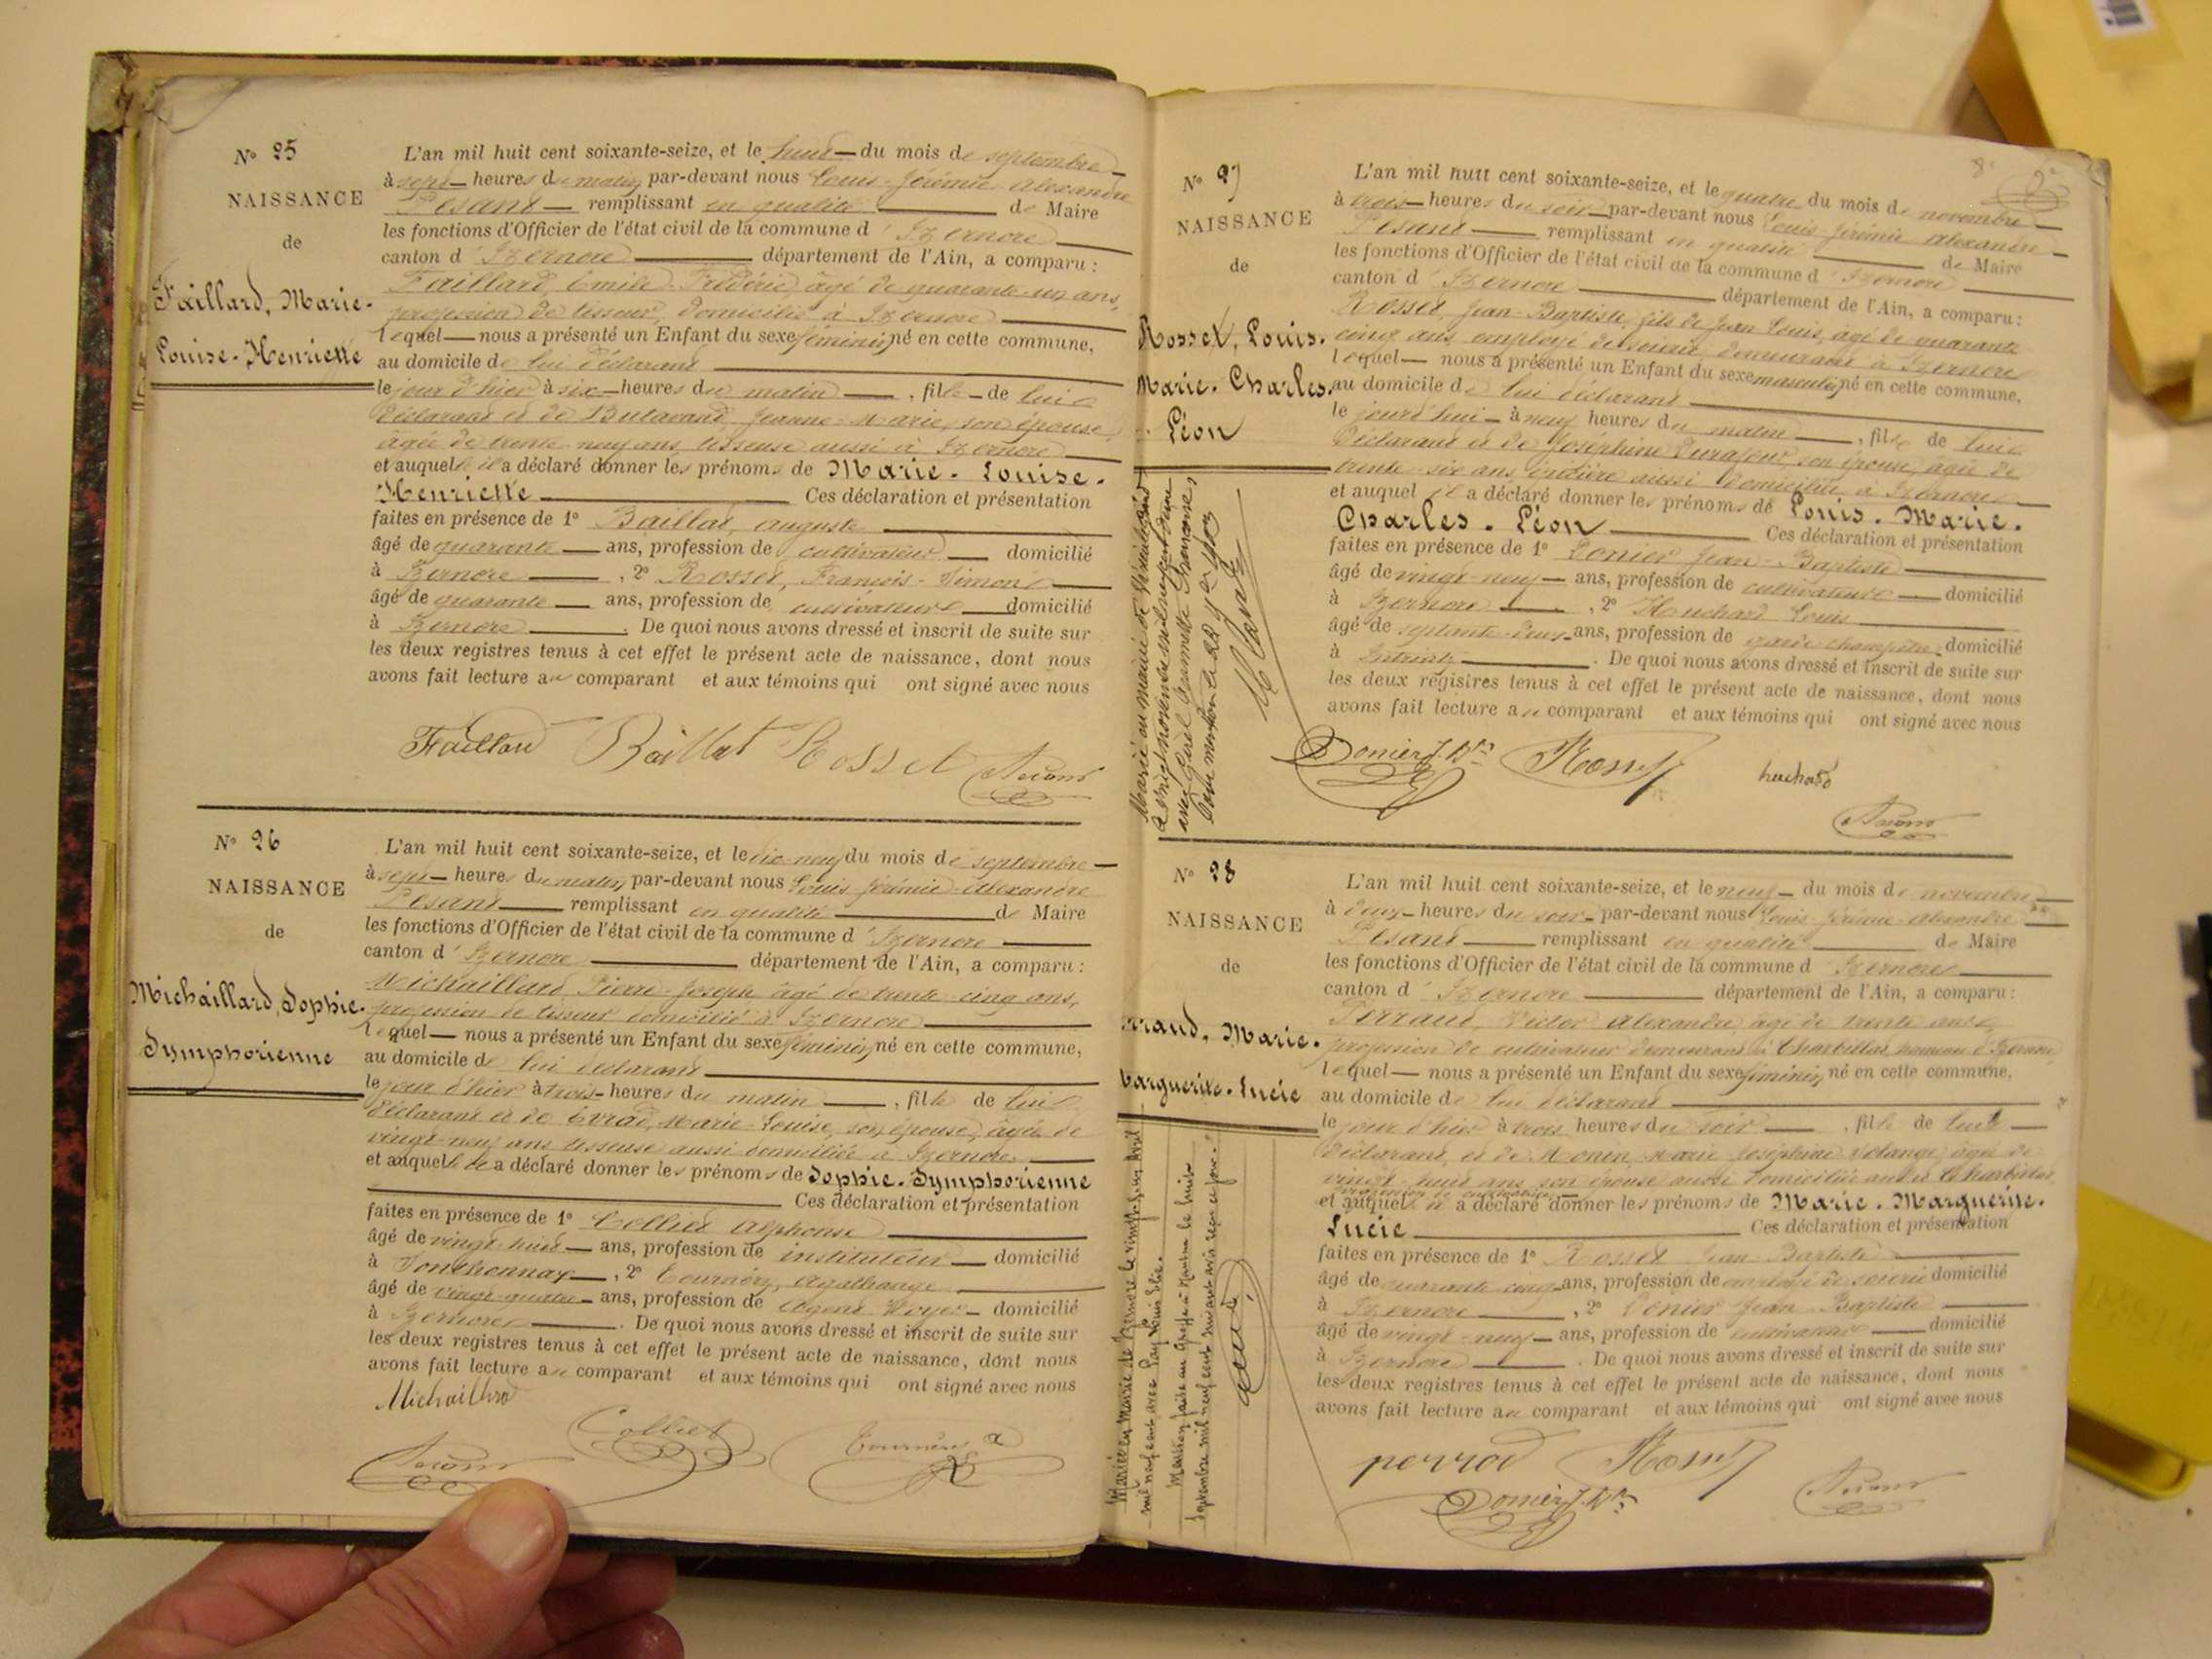 N° 25
NAISSANCE
de
Faillard, Marie-
Louise-Henriette
L'an mil huit cent soixante-seize, et le huit du mois de septembre
à sept heures du matin par-devant nous Louis-Jérémie Alexandre
Pesant remplissant en qualité de Maire
les fonctions d'Officier de l'état civil de la commune d'Izernore
canton d'Izernore département de l'Ain, a comparu :
Faillard, Emile Frédéric, âgé de quarante-un ans,
profession de tisseur, domicilié à Izernore
lequel nous a présenté un Enfant du sexe féminin, né en cette commune,
au domicile de lui déclarant
le jour d'hier à six heures du matin , fille de lui
déclarant et de Butavand, Jeanne-Marie, son épouse,
âgée de trente-neuf ans, tisseuse aussi à Izernore
et auquel il a déclaré donner les prénoms de Marie-Louise-
Henriette Ces déclaration et présentation
faites en présence de 1° Baillat, Auguste
âgé de quarante ans, profession de cultivateur domicilié
à Izernore , 2° Rosset, François-Simon
âgé de quarante ans, profession de cultivateur domicilié
à Izernore . De quoi nous avons dressé et inscrit de suite sur
les deux registres tenus à cet effet le présent acte de naissance, dont nous
avons fait lecture au comparant et aux témoins qui ont signé avec nous
Faillard Baillat Rosset Pesant
N° 26
NAISSANCE
de
Michaillard, Sophie-
Symphorienne
L'an mil huit cent soixante-seize, et le dix-neuf du mois de septembre
à sept heures du matin, par-devant nous Louis-Jérémie-Alexandre
Pesant remplissant en qualité de Maire
les fonctions d'Officier de l'état civil de la commune d'Izernore
canton d'Izernore département de l'Ain, a comparu :
Michaillard Pierre-Joseph âgé de trente-cinq ans,
profession de tisseur domicilié à Izernore
lequel nous a présenté un Enfant du sexe féminin, né en cette commune,
au domicile de lui déclarant
le jour d'hier à trois heures du matin , fille de lui
déclarant et de Evrad, Marie-Louise, son épouse, âgée de
vingt-neuf ans tisseuse aussi domiciliée à Izernore.
et auquel il a déclaré donner les prénoms de Sophie-Symphorienne
Ces déclaration et présentation
faites en présence de 1° Colliet Alphonse
âgé de vingt-huit ans, profession de instituteur domicilié
à Sonthonnax , 2° Tournéry, Agathange
âgé de vingt-quatre ans, profession de Agent-Voyer domicilié
à Izernore . De quoi nous avons dressé et inscrit de suite sur
les deux registres tenus à cet effet le présent acte de naissance, dont nous
avons fait lecture au comparant et aux témoins qui ont signé avec nous
Michaillard
Pesant Colliet Tournéry A
N° 27
NAISSANCE
de
Rosset, Louis-
Marie-Charles-
Léon
L'an mil huit cent soixante-seize, et le quatre du mois de novembre
à trois heures du soir par-devant nous Louis-Jérémie Alexandre
Pesant remplissant en qualité de Maire
les fonctions d'Officier de l'état civil de la commune d'Izernore
canton d'Izernore département de l'Ain, a comparu :
Rosset, Jean-Baptiste, fils de Jean-Louis, âgé de quarante
cinq ans, employé de soierie, demeurant à Izernore
lequel nous a présenté un Enfant du sexe masculin, né en cette commune,
au domicile de lui déclarant
le jourd'hui à neuf heures du matin , fils de lui
déclarant et de Joséphine Durafour, son épouse, âgée de
trente-six ans, aussi domiciliée à Izernore
et auquel il a déclaré donner les prénoms de Louis-Marie-
Charles-Léon Ces déclaration et présentation
faites en présence de 1° Donier Jean-Baptiste
âgé de vingt-neuf ans, profession de cultivateur domicilié
à Izernore , 2° Huchard Louis
âgé de septante-deux ans, profession de garde-champêtre domicilié
à Intriat . De quoi nous avons dressé et inscrit de suite sur
les deux registres tenus à cet effet le présent acte de naissance, dont nous
avons fait lecture au comparant et aux témoins qui ont signé avec nous
Donier J. Bte Rosset huchard
Pesant
N° 28
NAISSANCE
de
rraud, Marie-
Marguerite-Lucie
Mariée en mairie de Izernore le vingt-un Avril
mil neuf cent avec Louis Elie.
Mention faite au Greffe à Nantua le huit
septembre mil neuf cent suivant avis reçu ce jour.
L'an mil huit cent soixante-seize, et le neuf du mois de novembre
à deux heures du soir par-devant nous Louis-Jérémie-Alexandre
Pesant remplissant en qualité de Maire
les fonctions d'Officier de l'état civil de la commune d Izernore
canton d'Izernore département de l'Ain, a comparu :
Perraud, Victor Alexandre âgé de trente ans
profession de cultivateur demeurant à Charbillat, hameau d'Izernore
lequel nous a présenté un Enfant du sexe féminin, né en cette commune,
au domicile de lui déclarant
le jour d'hier à trois heures du soir , fille de lui
déclarant, et de Monin, Marie Joséphine Solange âgée de
vingt-huit ans son épouse aussi domiciliée audit Charbillat
et auquel il a déclaré donner les prénoms de Marie-Marguerite-
Lucie Ces déclaration et présentation
faites en présence de 1° Rosset Jean-Baptiste
âgé de quarante-cinq ans, profession de employé de soierie domicilié
à Izernore , 2° Donier Jean-Baptiste
âgé de vingt-neuf ans, profession de cultivateur domicilié
à Izernore . De quoi nous avons dressé et inscrit de suite sur
les deux registres tenus à cet effet le présent acte de naissance, dont nous
avons fait lecture au comparant et aux témoins qui ont signé avec nous
perrod Rosset
Donier J. Bte Pesant